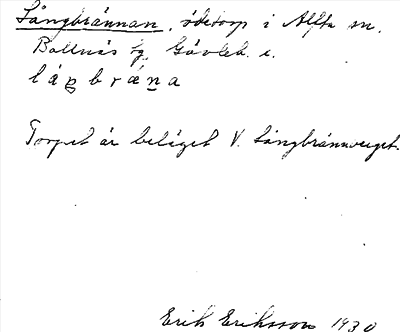 Långbrännan, ödetorp i Alfta sn.
Bollnäs tg. Gävleb. l.
låŋbrǽna
Torpet är beläget V. Långbrännberget.
Erik Eriksson 1930